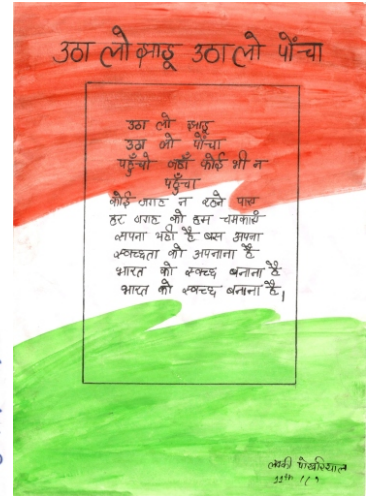 उठा लो झाडू उठा लो पोंचा
उठा लो झाडू
उठा लो पोंचा
पहुँचो जहाँ कोई भी न
पहुँचा
कोई जगह न रहने पाए
हर जगह को हम चमकाएँ
सपना यही है बस अपना
स्वच्छता को अपनाना है
भारत को स्वच्छ बनाना है
भारत को स्वच्छ बनाना है।
लक्की पोखरियाल
11th